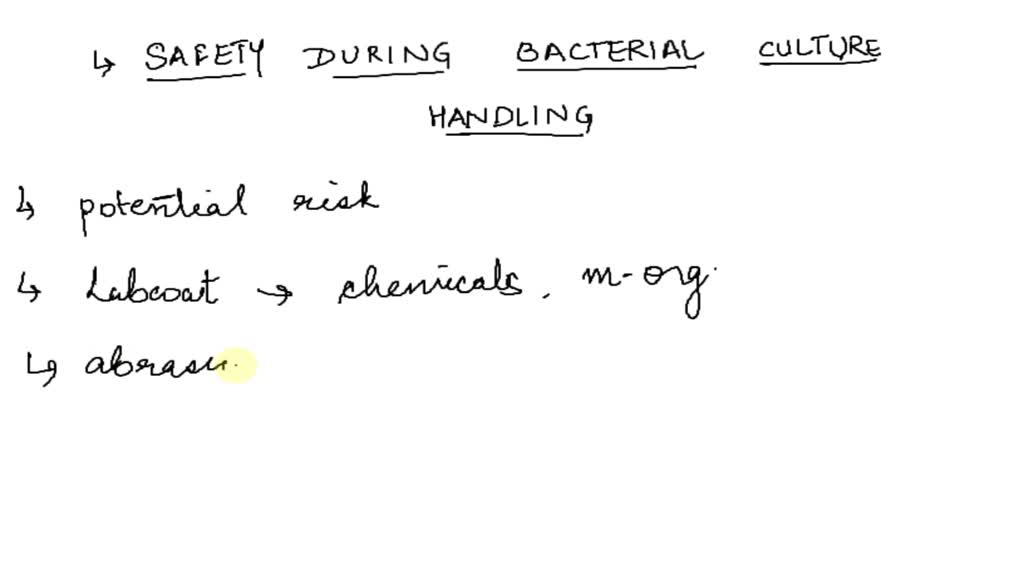 ↳ SAFETY DURING BACTERIAL CULTURE
HANDLING
↳ potential risk
↳ Labcoat → chemicals, m-org.
↳ abrasi